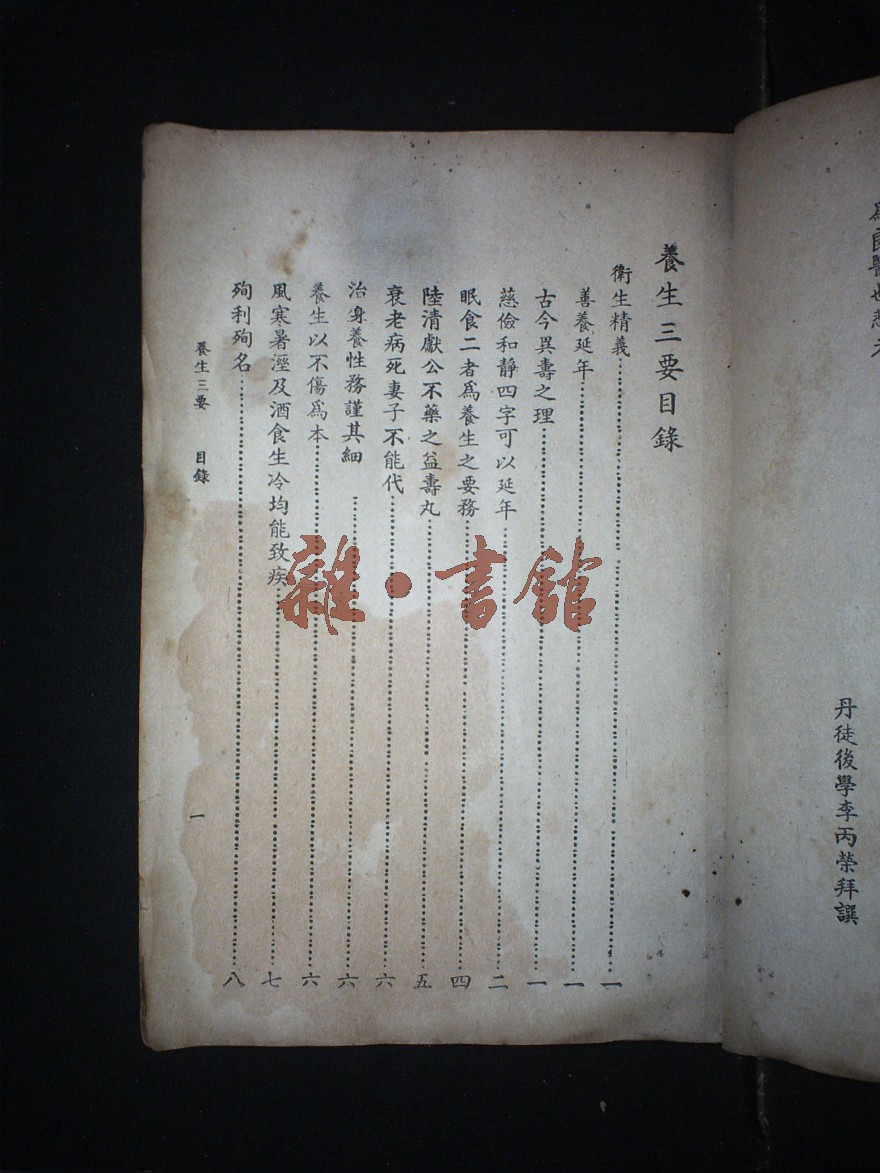 為國醫也
丹徒後學李丙榮拜譔
養生三要目錄
衛生精義……一
善養延年……一
古今異壽之理……一
慈儉和靜四字可以延年……二
眠食二者為養生之要務……四
陸清獻公不藥之益壽丸……五
衰老病死妻子不能代……六
治身養性務謹其細……六
養生以不傷為本……六
風寒暑溼及酒食生冷均能致疾……七
殉利殉名……八
養生三要 目錄 一
雜·書館